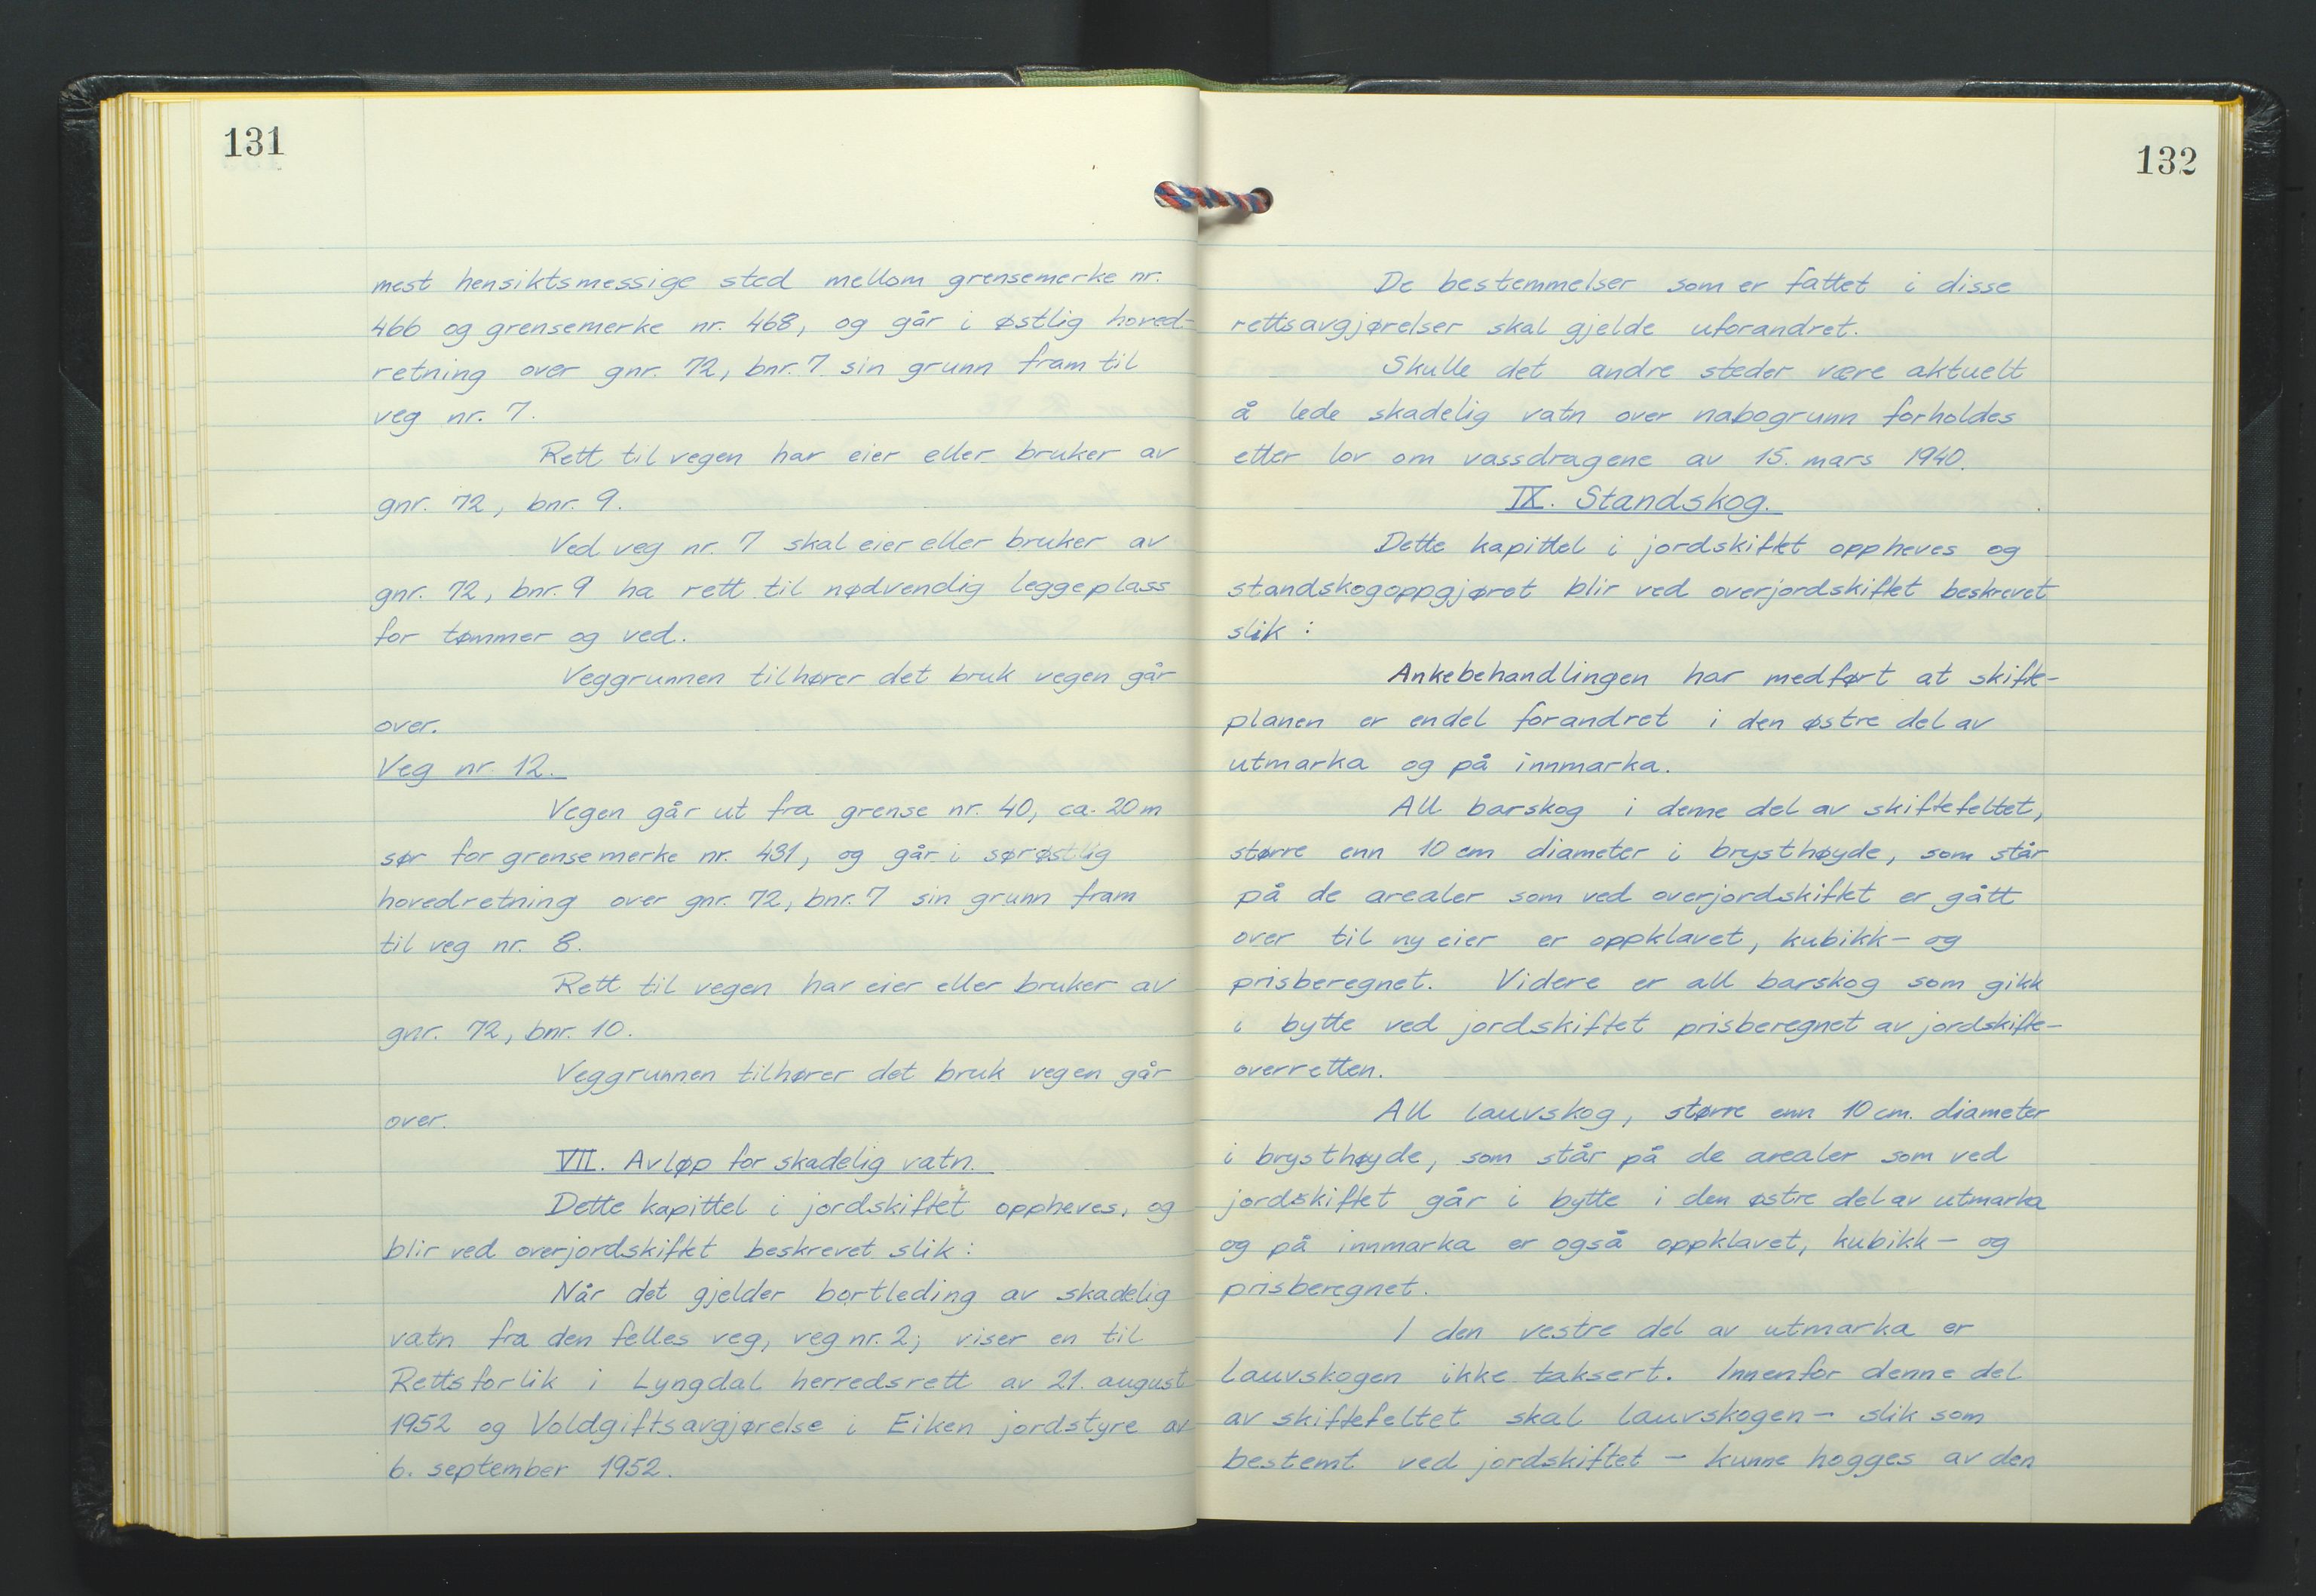 131
mest hensiktsmessige sted mellom grensemerke nr.
466 og grensemerke nr. 468, og går i østlig hoved-
retning over gnr. 72, bnr. 7 sin grunn fram til
veg nr. 7.
Rett til vegen har eier eller bruker av
gnr. 72, bnr. 9.
Ved veg nr. 7 skal eier eller bruker av
gnr. 72, bnr. 9 ha rett til nødvendig leggeplass
for tømmer og ved.
Veggrunnen tilhører det bruk vegen går
over.
Veg nr. 12.
Vegen går ut fra grense nr. 40, ca. 20 m
sør for grensemerke nr. 431, og går i sørøstlig
hovedretning over gnr. 72, bnr. 7 sin grunn fram
til veg nr. 8.
Rett til vegen har eier eller bruker av
gnr. 72, bnr. 10.
Veggrunnen tilhører det bruk vegen går
over.
VII. Avløp for skadelig vatn.
Dette kapittel i jordskiftet oppheves, og
blir ved overjordskiftet beskrevet slik:
Når det gjelder bortleding av skadelig
vatn fra den felles veg, veg nr. 2; viser en til
Rettsforlik i Lyngdal herredsrett av 21. august
1952 og Voldgiftsavgjørelse i Eiken jordstyre av
6. september 1952.
132
De bestemmelser som er fattet i disse
rettsavgjørelser skal gjelde uforandret.
Skulle det andre steder være aktuelt
å lede skadelig vatn over nabogrunn forholdes
etter lov om vassdragene av 15. mars 1940.
IX. Standskog.
Dette kapittel i jordskiftet oppheves og
standskogoppgjøret blir ved overjordskiftet beskrevet
slik:
Ankebehandlingen har medført at skifte-
planen er endel forandret i den østre del av
utmarka og på innmarka.
All barskog i denne del av skiftefeltet,
større enn 10 cm diameter i brysthøyde, som står
på de arealer som ved overjordskiftet er gått
over til ny eier er oppklavet, kubikk- og
prisberegnet. Videre er all barskog som gikk
i bytte ved jordskiftet prisberegnet av jordskifte-
overretten.
All lauvskog, større enn 10 cm. diameter
i brysthøyde, som står på de arealer som ved
jordskiftet går i bytte i den østre del av utmarka
og på innmarka er også oppklavet, kubikk- og
prisberegnet.
I den vestre del av utmarka er
lauvskogen ikke taksert. Innenfor denne del
av skiftefeltet skal lauvskogen - slik som
bestemt ved jordskiftet - kunne hogges av den